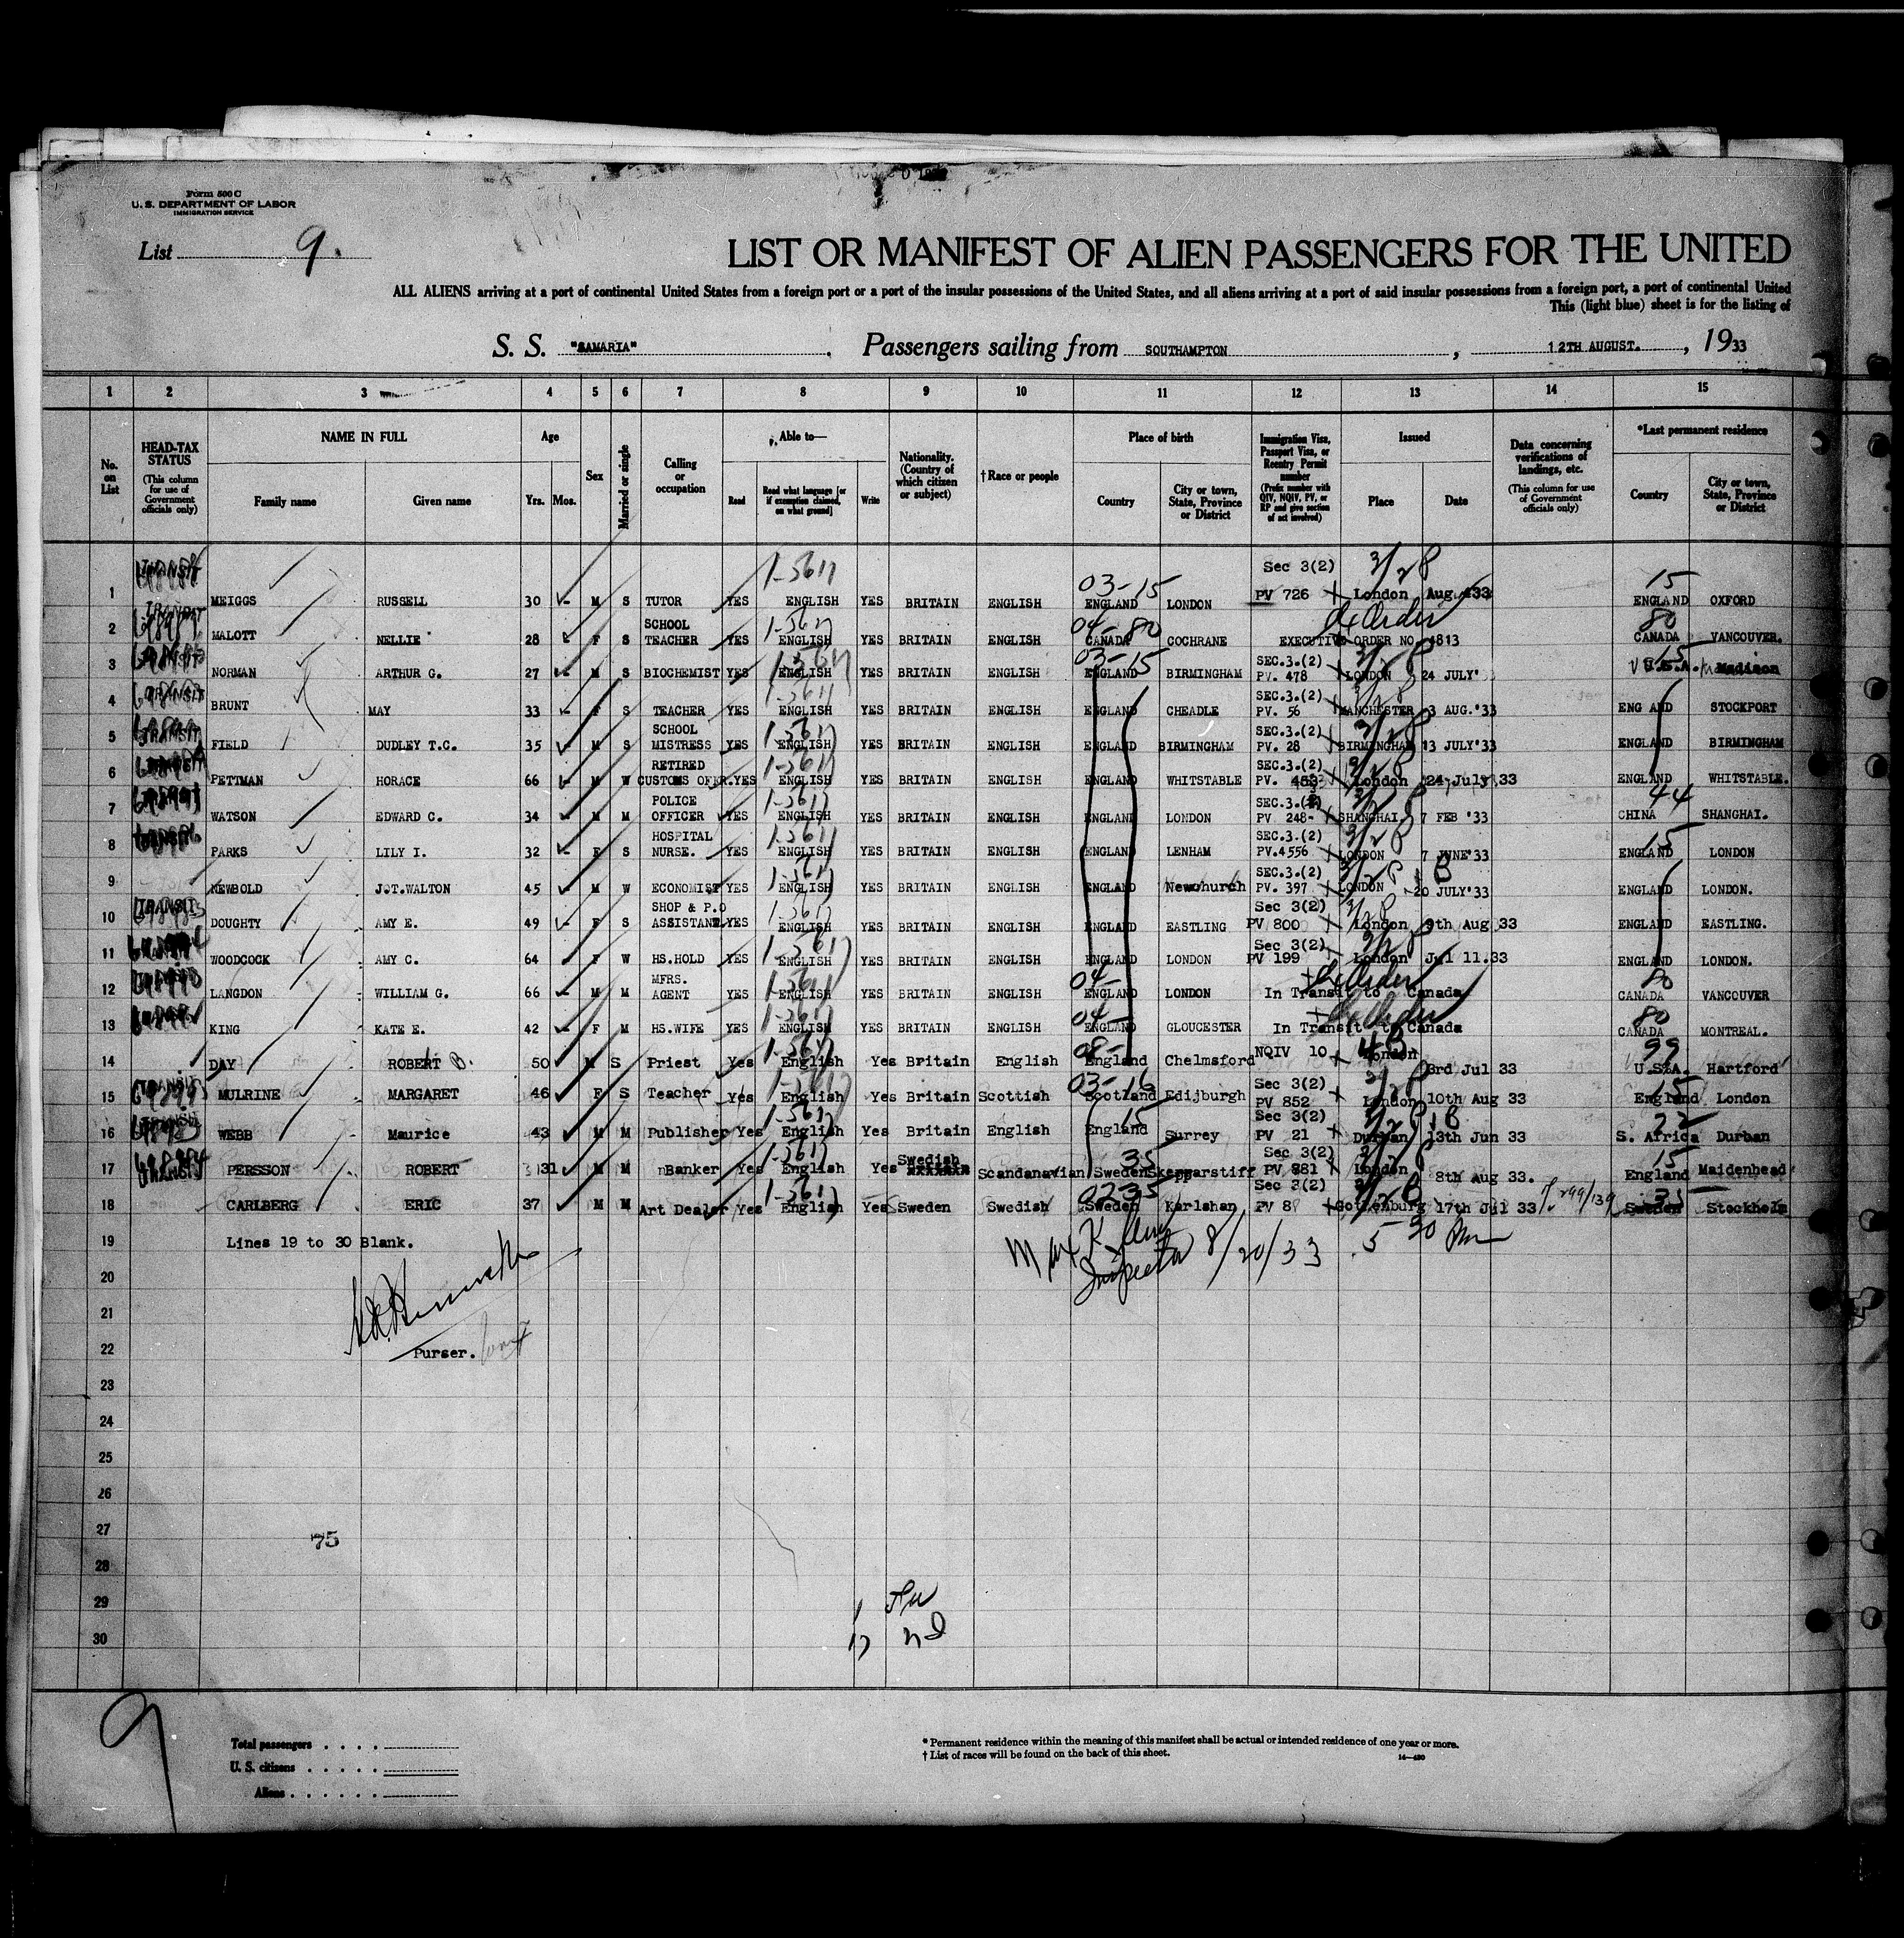 Form 500 C
U. S. DEPARTMENT OF LABOR
IMMIGRATION SERVICE
List 9.
LIST OR MANIFEST OF ALIEN PASSENGERS FOR THE UNITED
ALL ALIENS arriving at a port of continental United States from a foreign port or a port of the insular possessions of the United States, and all aliens arriving at a port of said insular possessions from a foreign port, a port of continental United
This (light blue) sheet is for the listing of
S. S. "SAMARIA". Passengers sailing from SOUTHAMPTON, 12TH AUGUST., 1933
1 2 3 4 5 6 7 8 9 10 11 12 13 14 15
No. on List
HEAD-TAX STATUS (This column for use of Government officials only)
NAME IN FULL Family name Given name
Age Yrs. Mos.
Sex
Married or single
Calling or occupation
Able to— Read Read what language [or if exemption claimed, on what ground] Write
Nationality. (Country of which citizen or subject)
†Race or people
Place of birth Country City or town, State, Province or District
Immigration Visa, Passport Visa, or Reentry Permit number (Prefix number with QIV, NQIV, PV, or RP and give section of act involved)
Issued Place Date
Data concerning verifications of landings, etc. (This column for use of Government officials only)
*Last permanent residence Country City or town, State, Province or District
1 TRANSIT MEIGGS RUSSELL 30 M S TUTOR YES 1-5617 ENGLISH YES BRITAIN ENGLISH 03-15 ENGLAND LONDON Sec 3(2) PV 726 3/2 B London Aug. 33 15 ENGLAND OXFORD
2 TRANSIT MALOTT NELLIE 28 F S SCHOOL TEACHER YES 1-5617 ENGLISH YES BRITAIN ENGLISH 04-80 CANADA COCHRANE Ex Order EXECUTIVE ORDER NO. 4813 80 CANADA VANCOUVER.
3 NORMAN ARTHUR G. 27 M S BIOCHEMIST YES 1-5617 ENGLISH YES BRITAIN ENGLISH 03-15 ENGLAND BIRMINGHAM SEC.3.(2) PV. 478 3/2 B LONDON 24 JULY' 15 U.S.A. Madison
4 TRANSIT BRUNT MAY 33 F S TEACHER YES 1-5617 ENGLISH YES BRITAIN ENGLISH ENGLAND CHEADLE SEC.3.(2) PV. 56 3/2 B MANCHESTER 3 AUG.'33 ENG AND STOCKPORT
5 TRANSIT FIELD DUDLEY T.C. 35 M S SCHOOL MISTRESS YES 1-5617 ENGLISH YES BRITAIN ENGLISH ENGLAND BIRMINGHAM SEC.3.(2) PV. 28 3/2 B BIRMINGHAM 13 JULY'33 ENGLAND BIRMINGHAM
6 PETTMAN HORACE 66 M W RETIRED CUSTOMS OFFR. YES 1-5617 ENGLISH YES BRITAIN ENGLISH ENGLAND WHITSTABLE SEC.3.(2) PV. 453 3/2 B London 24 July 33 ENGLAND WHITSTABLE.
7 WATSON EDWARD C. 34 M M POLICE OFFICER YES 1-5617 ENGLISH YES BRITAIN ENGLISH ENGLAND LONDON SEC.3.(2) PV 248- 3/2 B SHANGHAI. 7 FEB '33 44 CHINA SHANGHAI.
8 PARKS LILY I. 32 F S HOSPITAL NURSE. YES 1-5617 ENGLISH YES BRITAIN ENGLISH ENGLAND LENHAM SEC.3.(2) PV.4556 3/2 B LONDON 7 JUNE'33 15 ENGLAND LONDON
9 NEWBOLD J.T.WALTON 45 M W ECONOMIST YES 1-5617 ENGLISH YES BRITAIN ENGLISH ENGLAND Newchurch SEC.3.(2) PV. 397 3/2 B LONDON 20 JULY'33 ENGLAND LONDON.
10 TRANSIT DOUGHTY AMY E. 49 F S SHOP & P.O ASSISTANT YES 1-5617 ENGLISH YES BRITAIN ENGLISH ENGLAND EASTLING Sec 3(2) PV 800 3/2 B London 9th Aug 33 ENGLAND EASTLING.
11 WOODCOCK AMY C. 64 F W HS.HOLD YES 1-5617 ENGLISH YES BRITAIN ENGLISH ENGLAND LONDON Sec 3(2) PV 199 3/2 B London Jul 11.33 ENGLAND LONDON.
12 LANGDON WILLIAM G. 66 M M MFRS. AGENT YES 1-5617 ENGLISH YES BRITAIN ENGLISH 04- ENGLAND LONDON Ex Order In Transit to Canada 80 CANADA VANCOUVER
13 KING KATE E. 42 F M HS.WIFE YES 1-5617 ENGLISH YES BRITAIN ENGLISH 04- ENGLAND GLOUCESTER Ex Order In Transit to Canada 80 CANADA MONTREAL.
14 DAY ROBERT B. 50 M S Priest Yes 1-5617 English Yes Britain English 08- England Chelmsford NQIV 10 4B London 3rd Jul 33 99 U.S.A. Hartford
15 TRANSIT MULRINE MARGARET 46 F S Teacher Yes 1-5617 English Yes Britain Scottish 03-16 Scotland Edijburgh Sec 3(2) PV 852 3/2 B London 10th Aug 33 15 England London
16 WEBB Maurice 43 M M Publisher Yes 1-5617 English Yes Britain English 15 England Surrey Sec 3(2) PV 21 3/2 B Durban 13th Jun 33 22 S. Africa Durban
17 TRANSIT PERSSON ROBERT 31 M M Banker Yes 1-5617 English Yes Swedish Scandanavian 35 Sweden Skepparstiff Sec 3(2) PV 881 3/2 B London 8th Aug 33. 15 England Maidenhead
18 CARLBERG ERIC 37 M M Art Dealer Yes 1-5617 English Yes Sweden Swedish 02-35 Sweden Karlshan Sec 3(2) PV 8 3/2 B Gothenburg 17th Jul 33 299/139 35 Sweden Stockholm
19 Lines 19 to 30 Blank.
Inspector 8/20/33 5 30 Pm
20
21
22 Purser.
23
24
25
26
27 75
28
29
30
9
Total passengers
U. S. citizens
Aliens
* Permanent residence within the meaning of this manifest shall be actual or intended residence of one year or more.
† List of races will be found on the back of this sheet.
14—430